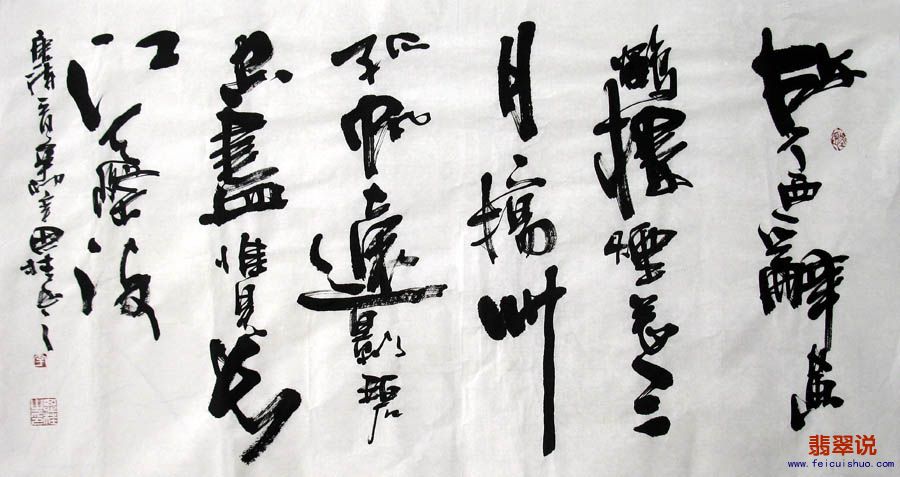 故人西辭黃
鶴樓煙花三
月揚州
孤帆遠影碧
空盡惟見長
江天際流
唐詩一首
翡翠说
www.feicuishuo.com